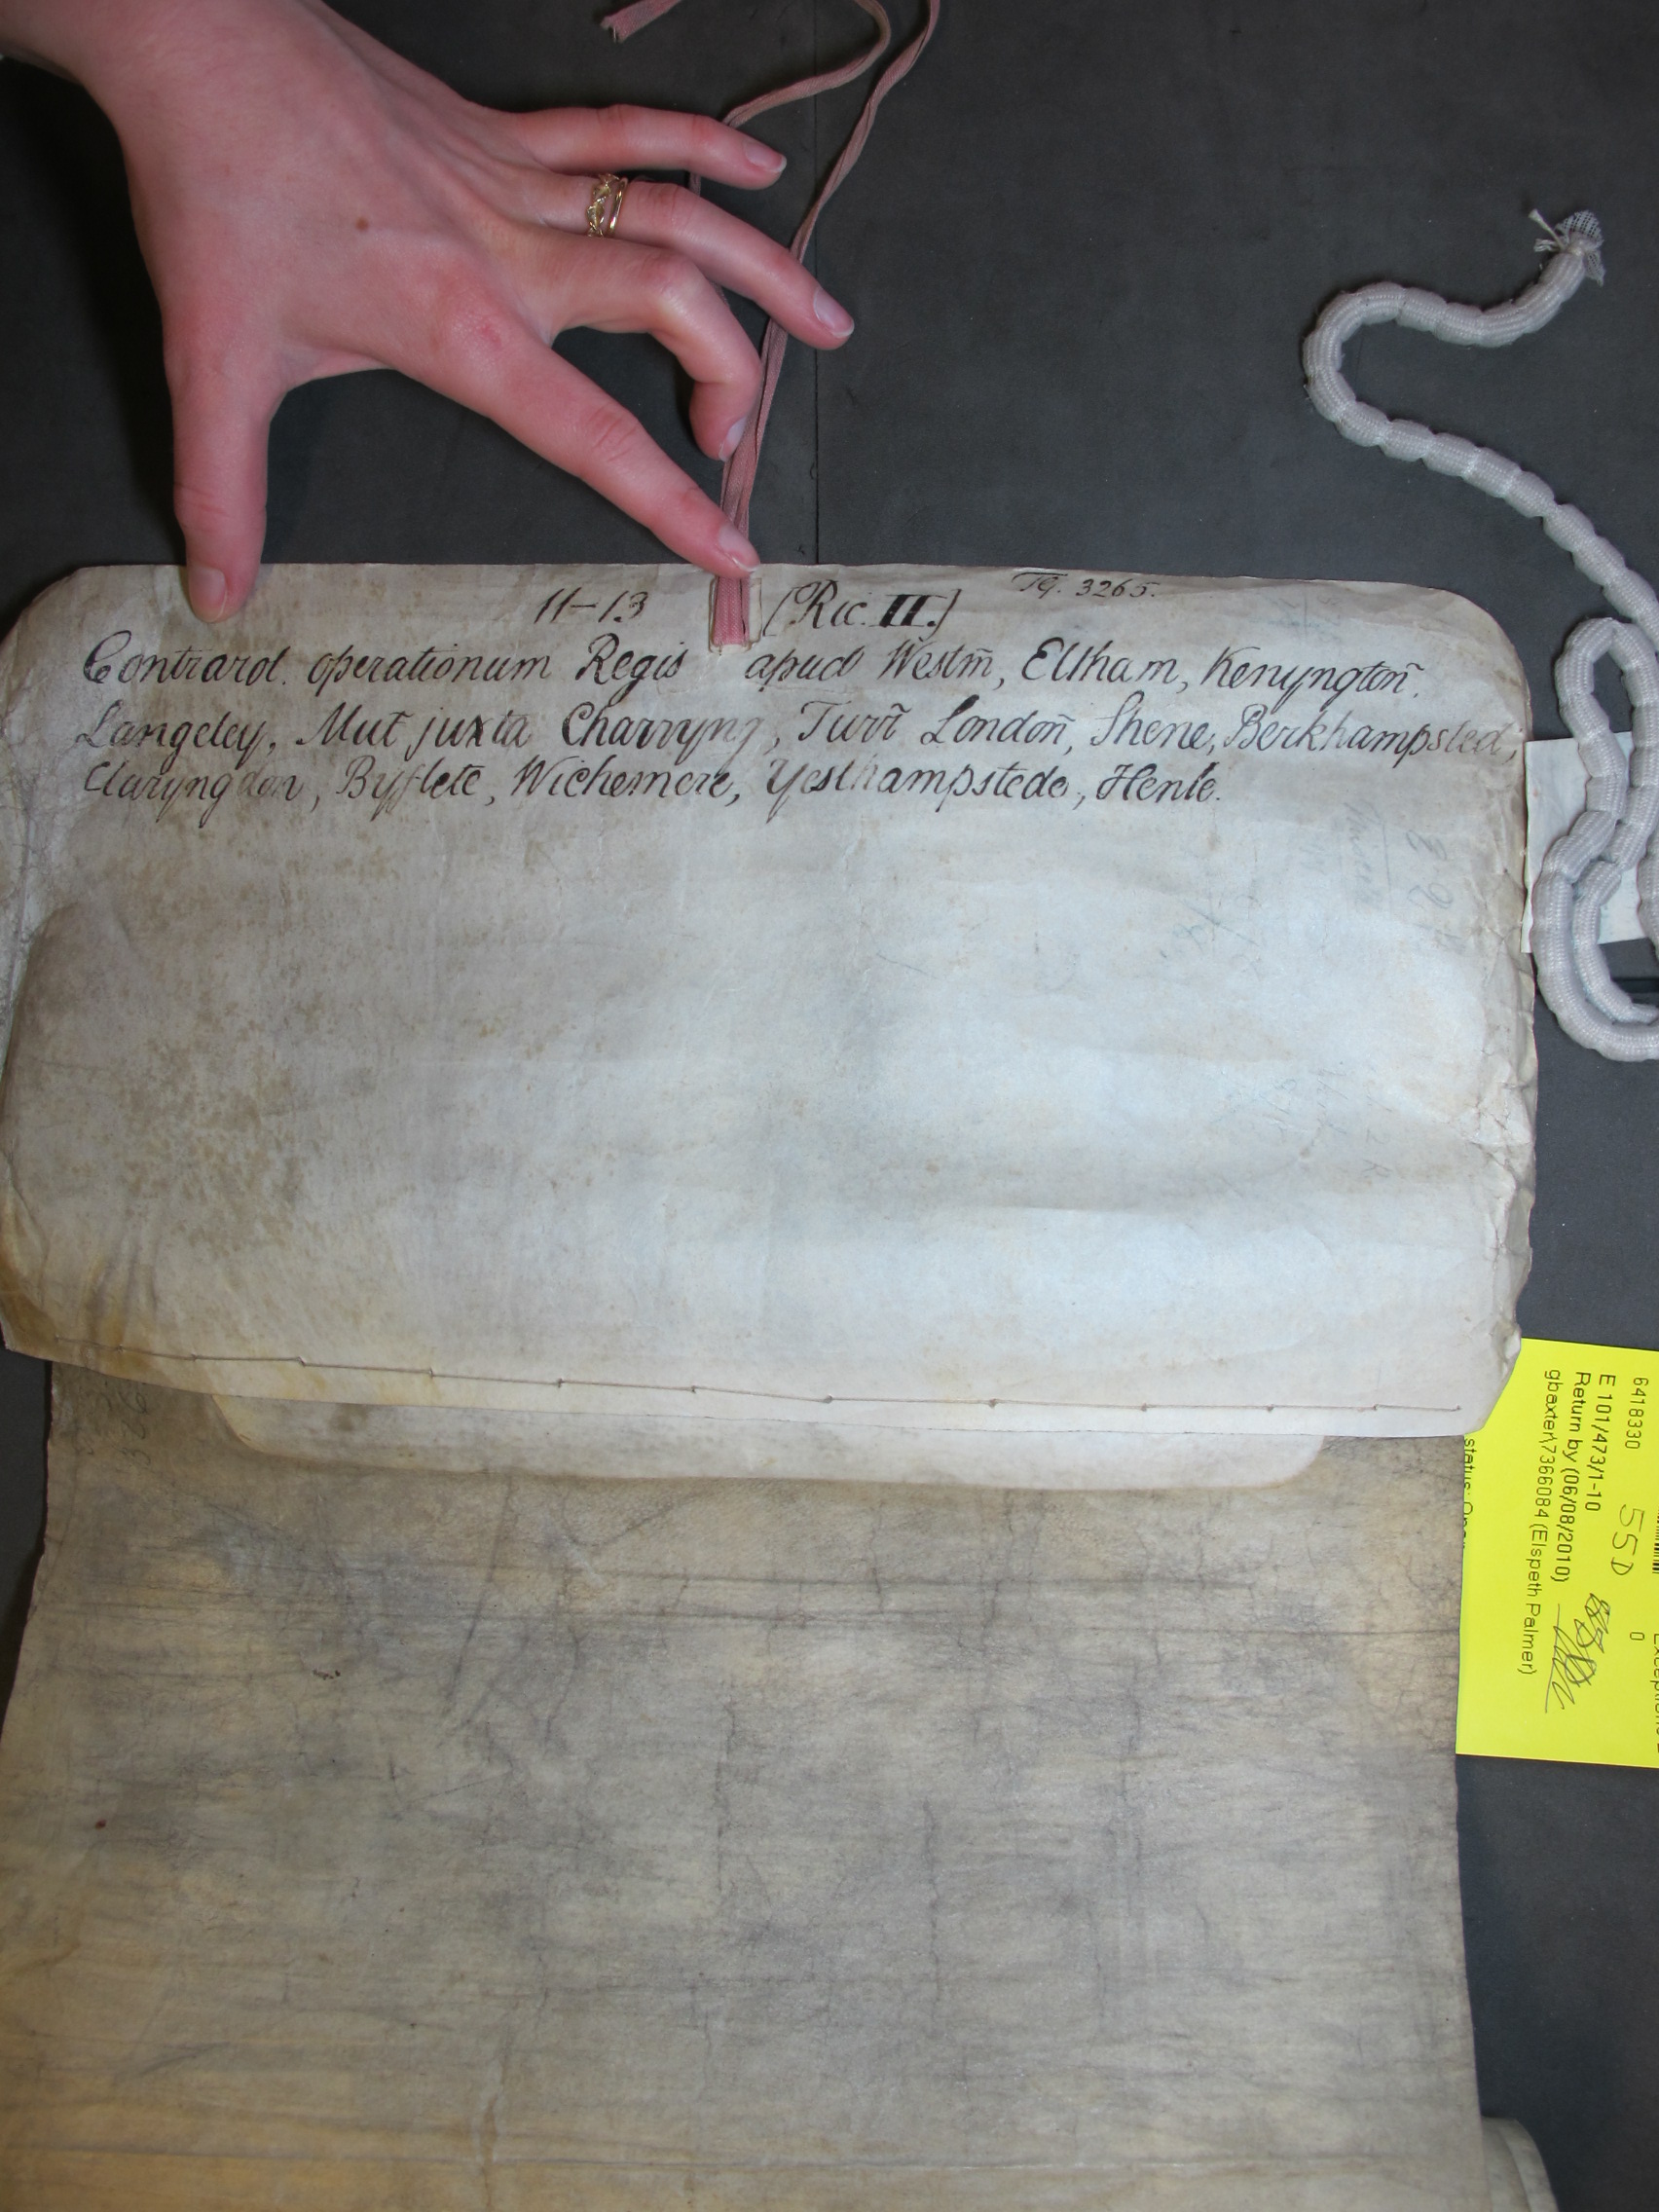 TG. 3265.
11-13 [Ric. II.]
Contrarot. operationum Regis apud Westm̃, Eltham, Kenyngton̄.
Langeley, Mut juxta Charryng, Turr̃ London̄, Shene, Berkhampsted,
Claryngdon, Byflete, Wichemere, Yesthampstede, Henle.
6418330
E 101/473/1-10
Return by (06/08/2010)
gbaxter\7366084 (Elspeth Palmer)
55D
0